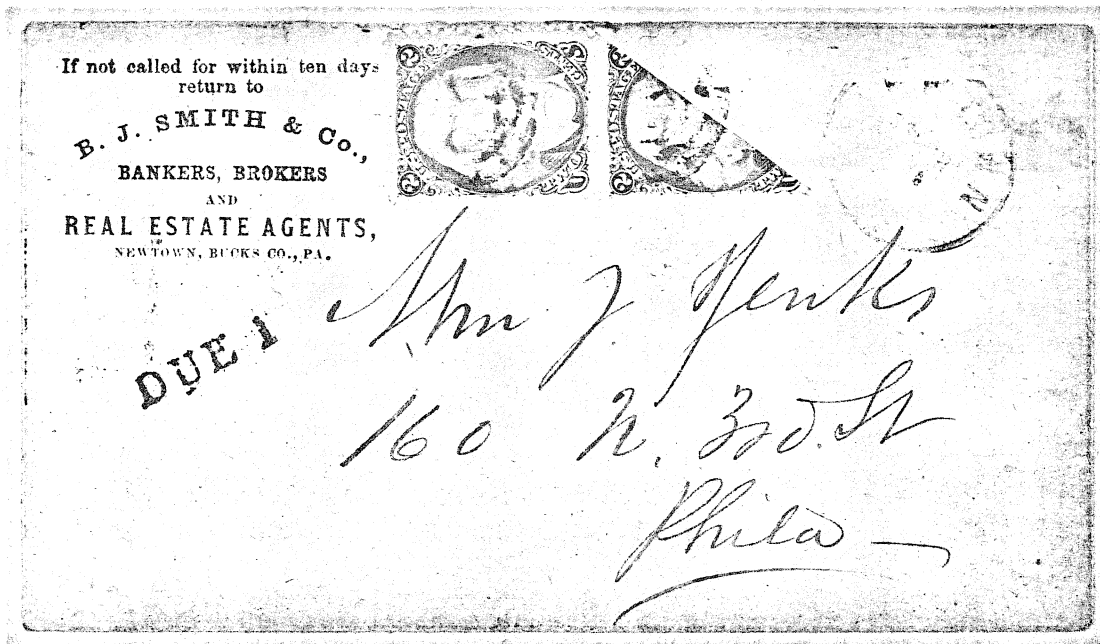 If not called for within ten days
return to
B. J. SMITH & Co.,
BANKERS, BROKERS
AND
REAL ESTATE AGENTS,
NEWTOWN, BUCKS CO., PA.
DUE 1
Wm J. Yenks
160 N. 3rd. St
Phila